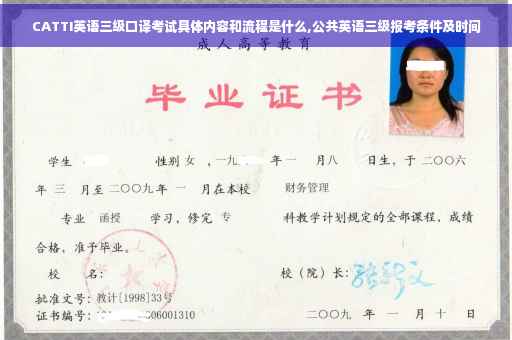 CATTI英语三级口译考试具体内容和流程是什么,公共英语三级报考条件及时间
成人高等教育
毕业证书
学生 性别 女 ，一九 年 一 月八 日生，于 二〇〇六
年 三 月至 二〇〇九 年 一 月在本校 财务管理
专业 函授 学习，修完 专 科教学计划规定的全部课程，成绩
合格，准予毕业。
校 名： 校（院）长：
批准文号：教计[1998]33号
证书编号： 06001310 二〇〇九 年 一 月 十 日